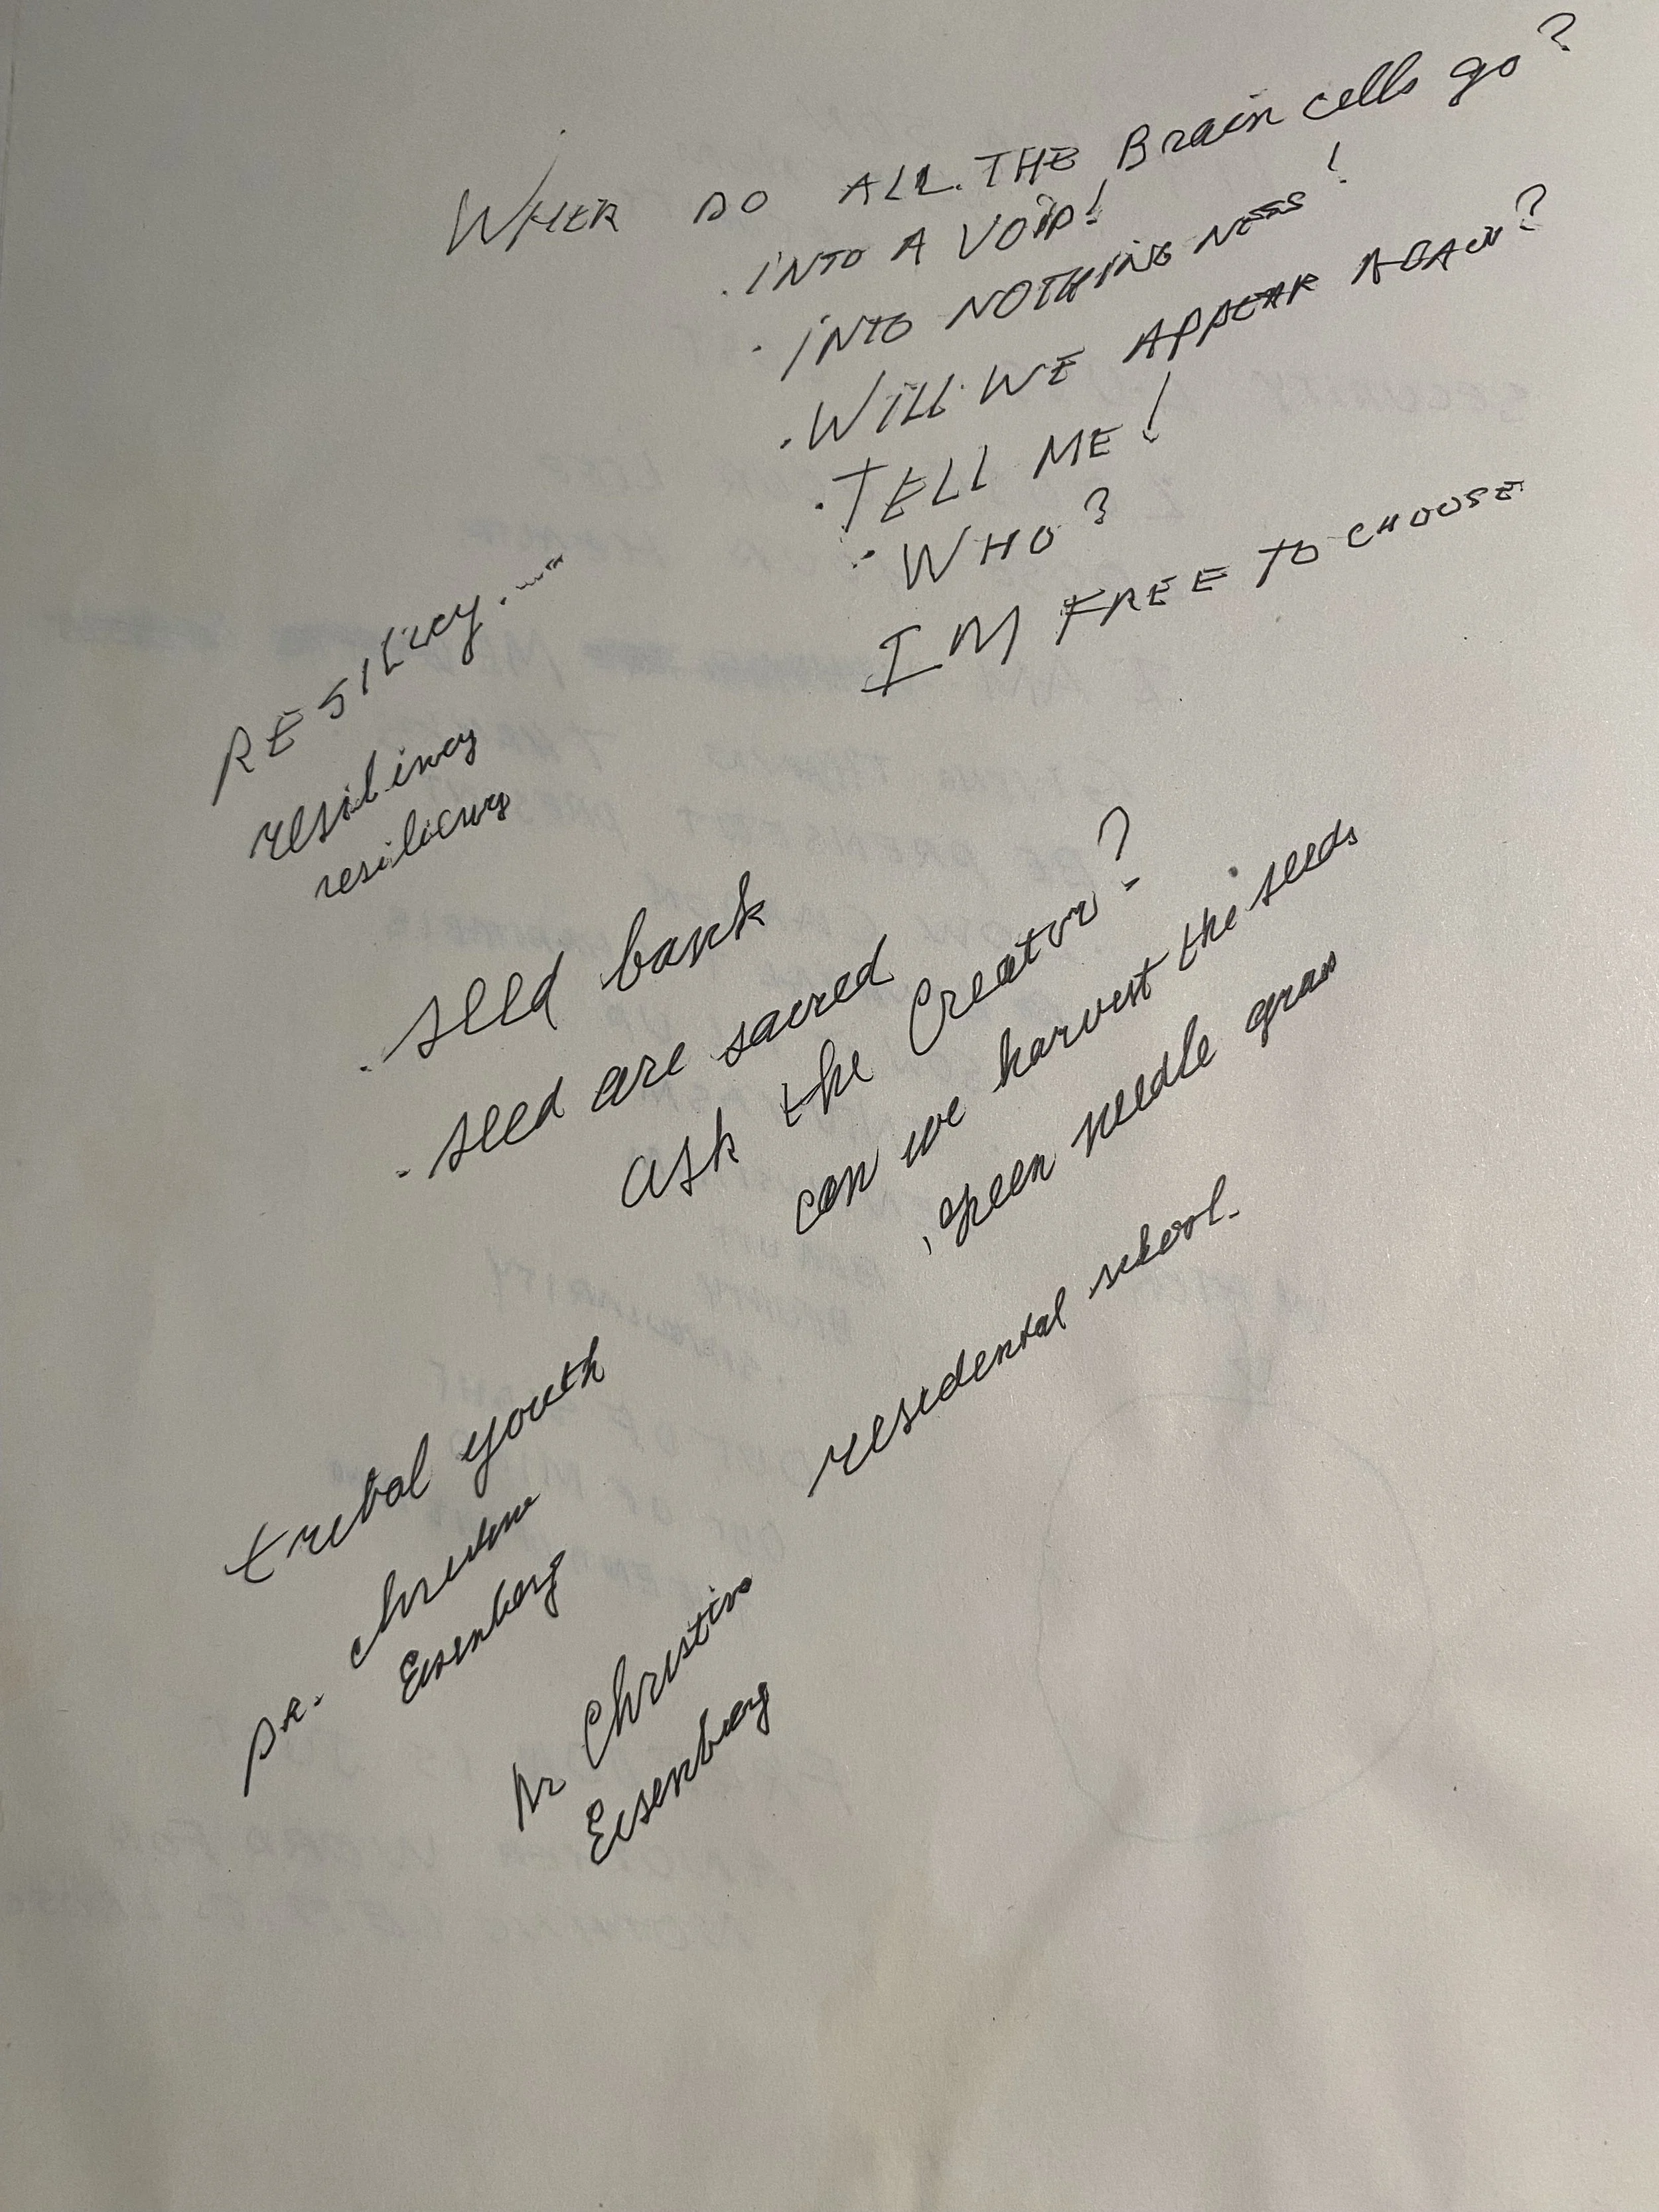 WHER DO ALL THE Brain cells go?
. INTO A VOID!
. INTO NOTHING NESS!
. WILL WE APPEAR AGAIN?
. TELL ME!
. WHO?
I M FREE TO CHOOSE
RESILICY....
resilincy
. seed bank
. seed are sacred
ask the Creator?
can we harvest the seeds
. green needle grass
residental school.
tribal youth
DR. Christine
Eisenberg
Dr Christine
Eisenberg